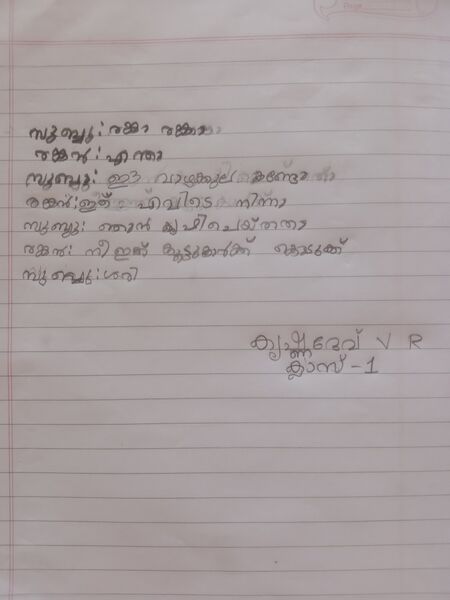 സുബ്ബു: രങ്കാ രങ്കാ
രങ്കൻ: എന്താ
സുബ്ബു: ഈ വാഴക്കുല കണ്ടോ
രങ്കൻ: ഇത് എവിടെ നിന്നാ
സുബ്ബു: ഞാൻ കൃഷിചെയ്തതാ
രങ്കൻ: നീ ഇത് കൂട്ടുകാർക്ക് കൊടുക്ക്
സുബ്ബു: ശരി
കൃഷ്ണദേവ് V R
ക്ലാസ് - 1